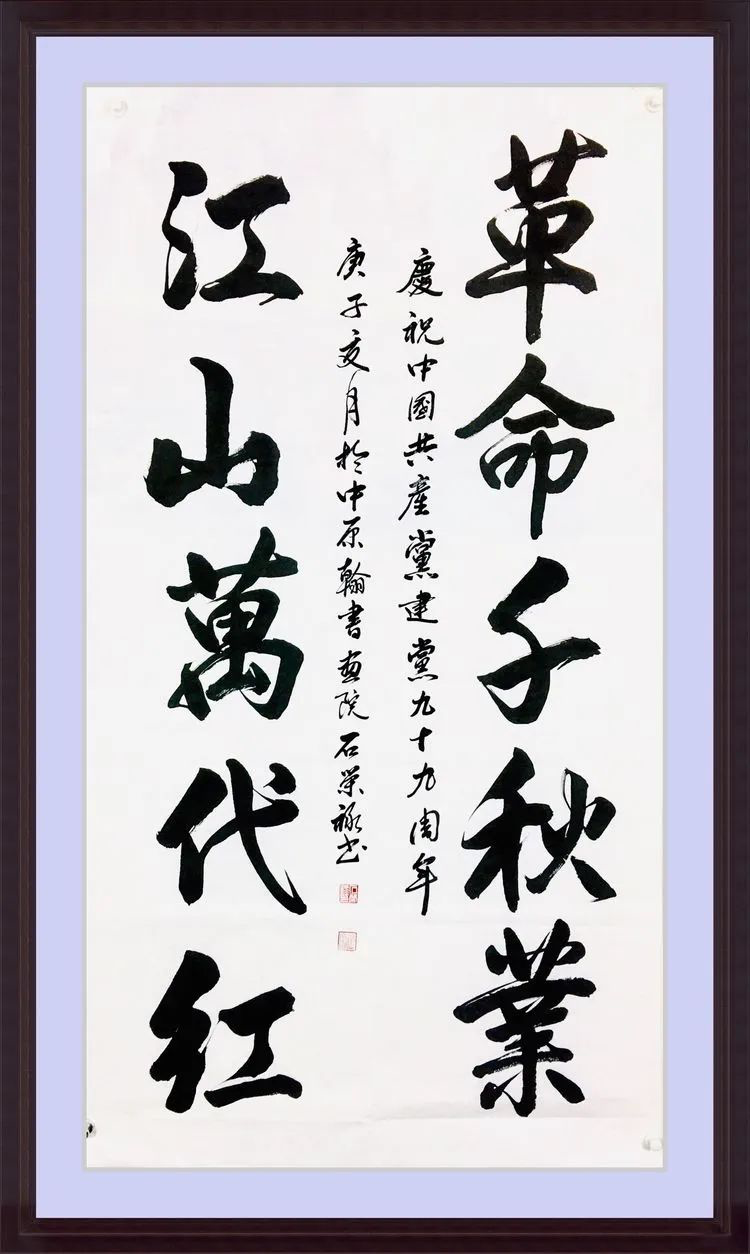 革命千秋業
慶祝中國共產黨建黨九十九周年
庚子亥月於中原翰書画院石榮祿书
江山萬代紅